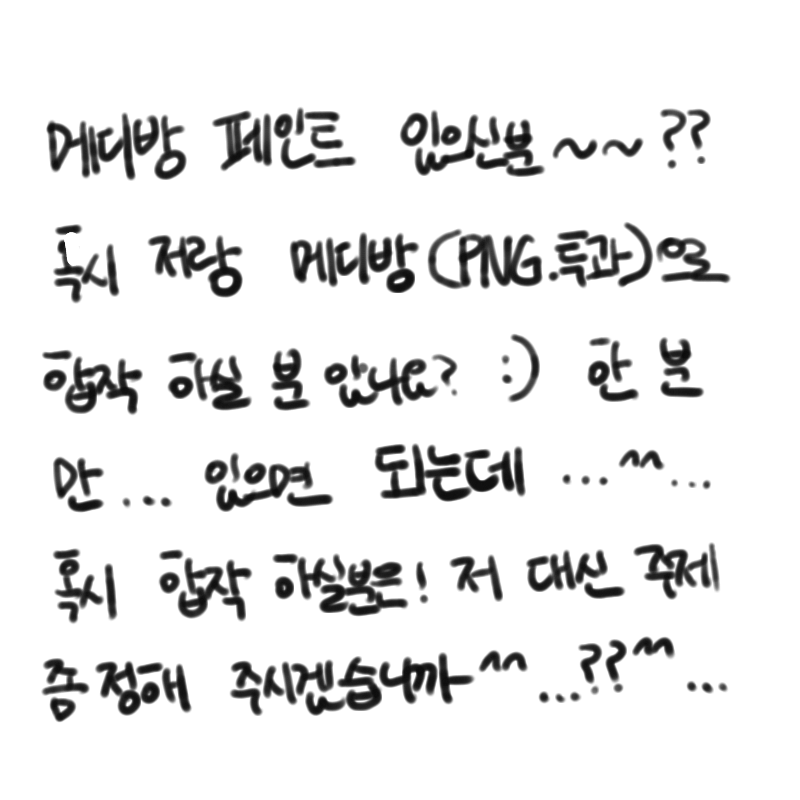 메디방 페인트 있으신분~~??
혹시 저랑 메디방(PNG.투과)으로
합작 하실 분 있나요? :) 한 분
만... 있으면 되는데 ...^^...
혹시 합작 하실분은! 저 대신 주제
좀 정해 주시겠습니까^^...??^^...